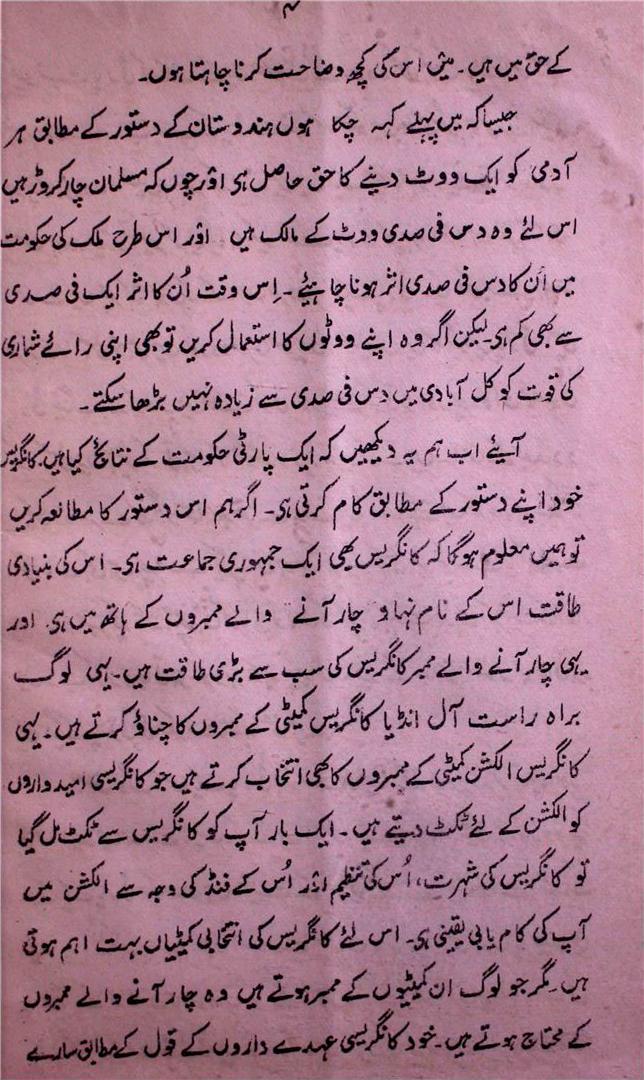 ۴
کے حق میں ہیں۔ میں اس کی کچھ وضاحت کرنا چاہتا ہوں۔
جیسا کہ میں پہلے کہہ چکا ہوں ہندوستان کے دستور کے مطابق ہر
آدمی کو ایک ووٹ دینے کا حق حاصل ہی اور چوں کہ مسلمان چار کروڑ ہیں
اس لئے وہ دس فی صدی ووٹ کے مالک ہیں اور اس طرح ملک کی حکومت
میں اُن کا دس فی صدی اثر ہونا چاہیئے۔ اِس وقت اُن کا اثر ایک فی صدی
سے بھی کم ہی۔ لیکن اگر وہ اپنے ووٹوں کا استعمال کریں تو بھی اپنی رائے شماری
کی قوت کو کل آبادی میں دس فی صدی سے زیادہ نہیں بڑھا سکتے۔
آیئے اب ہم یہ دیکھیں کہ ایک پارٹی حکومت کے نتائج کیا ہیں۔ کانگریس
خود اپنے دستور کے مطابق کام کرتی ہی۔ اگر ہم اس دستور کا مطالعہ کریں
تو ہمیں معلوم ہوگا کہ کانگریس بھی ایک جمہوری جماعت ہی۔ اس کی بنیادی
طاقت اس کے نام نہاد چار آنے والے ممبروں کے ہاتھ میں ہی۔ اور
یہی چار آنے والے ممبر کانگریس کی سب سے بڑی طاقت ہیں۔ یہی لوگ
براہ راست آل انڈیا کانگریس کمیٹی کے ممبروں کا چناؤ کرتے ہیں۔ یہی
کانگریس الکشن کمیٹی کے ممبروں کا بھی انتخاب کرتے ہیں جو کانگریسی امیدواروں
کو الکشن کے لئے ٹکٹ دیتے ہیں۔ ایک بار آپ کو کانگریس سے ٹکٹ مل گیا
تو کانگریس کی شہرت، اُس کی تنظیم اور اُس کے فنڈ کی وجہ سے الکشن میں
آپ کی کام یابی یقینی ہی۔ اس لئے کانگریس کی انتخابی کمیٹیاں بہت اہم ہوتی
ہیں۔ مگر جو لوگ ان کمیٹیوں کے ممبر ہوتے ہیں وہ چار آنے والے ممبروں
کے محتاج ہوتے ہیں۔ خود کانگریسی عہدے داروں کے قول کے مطابق سارے